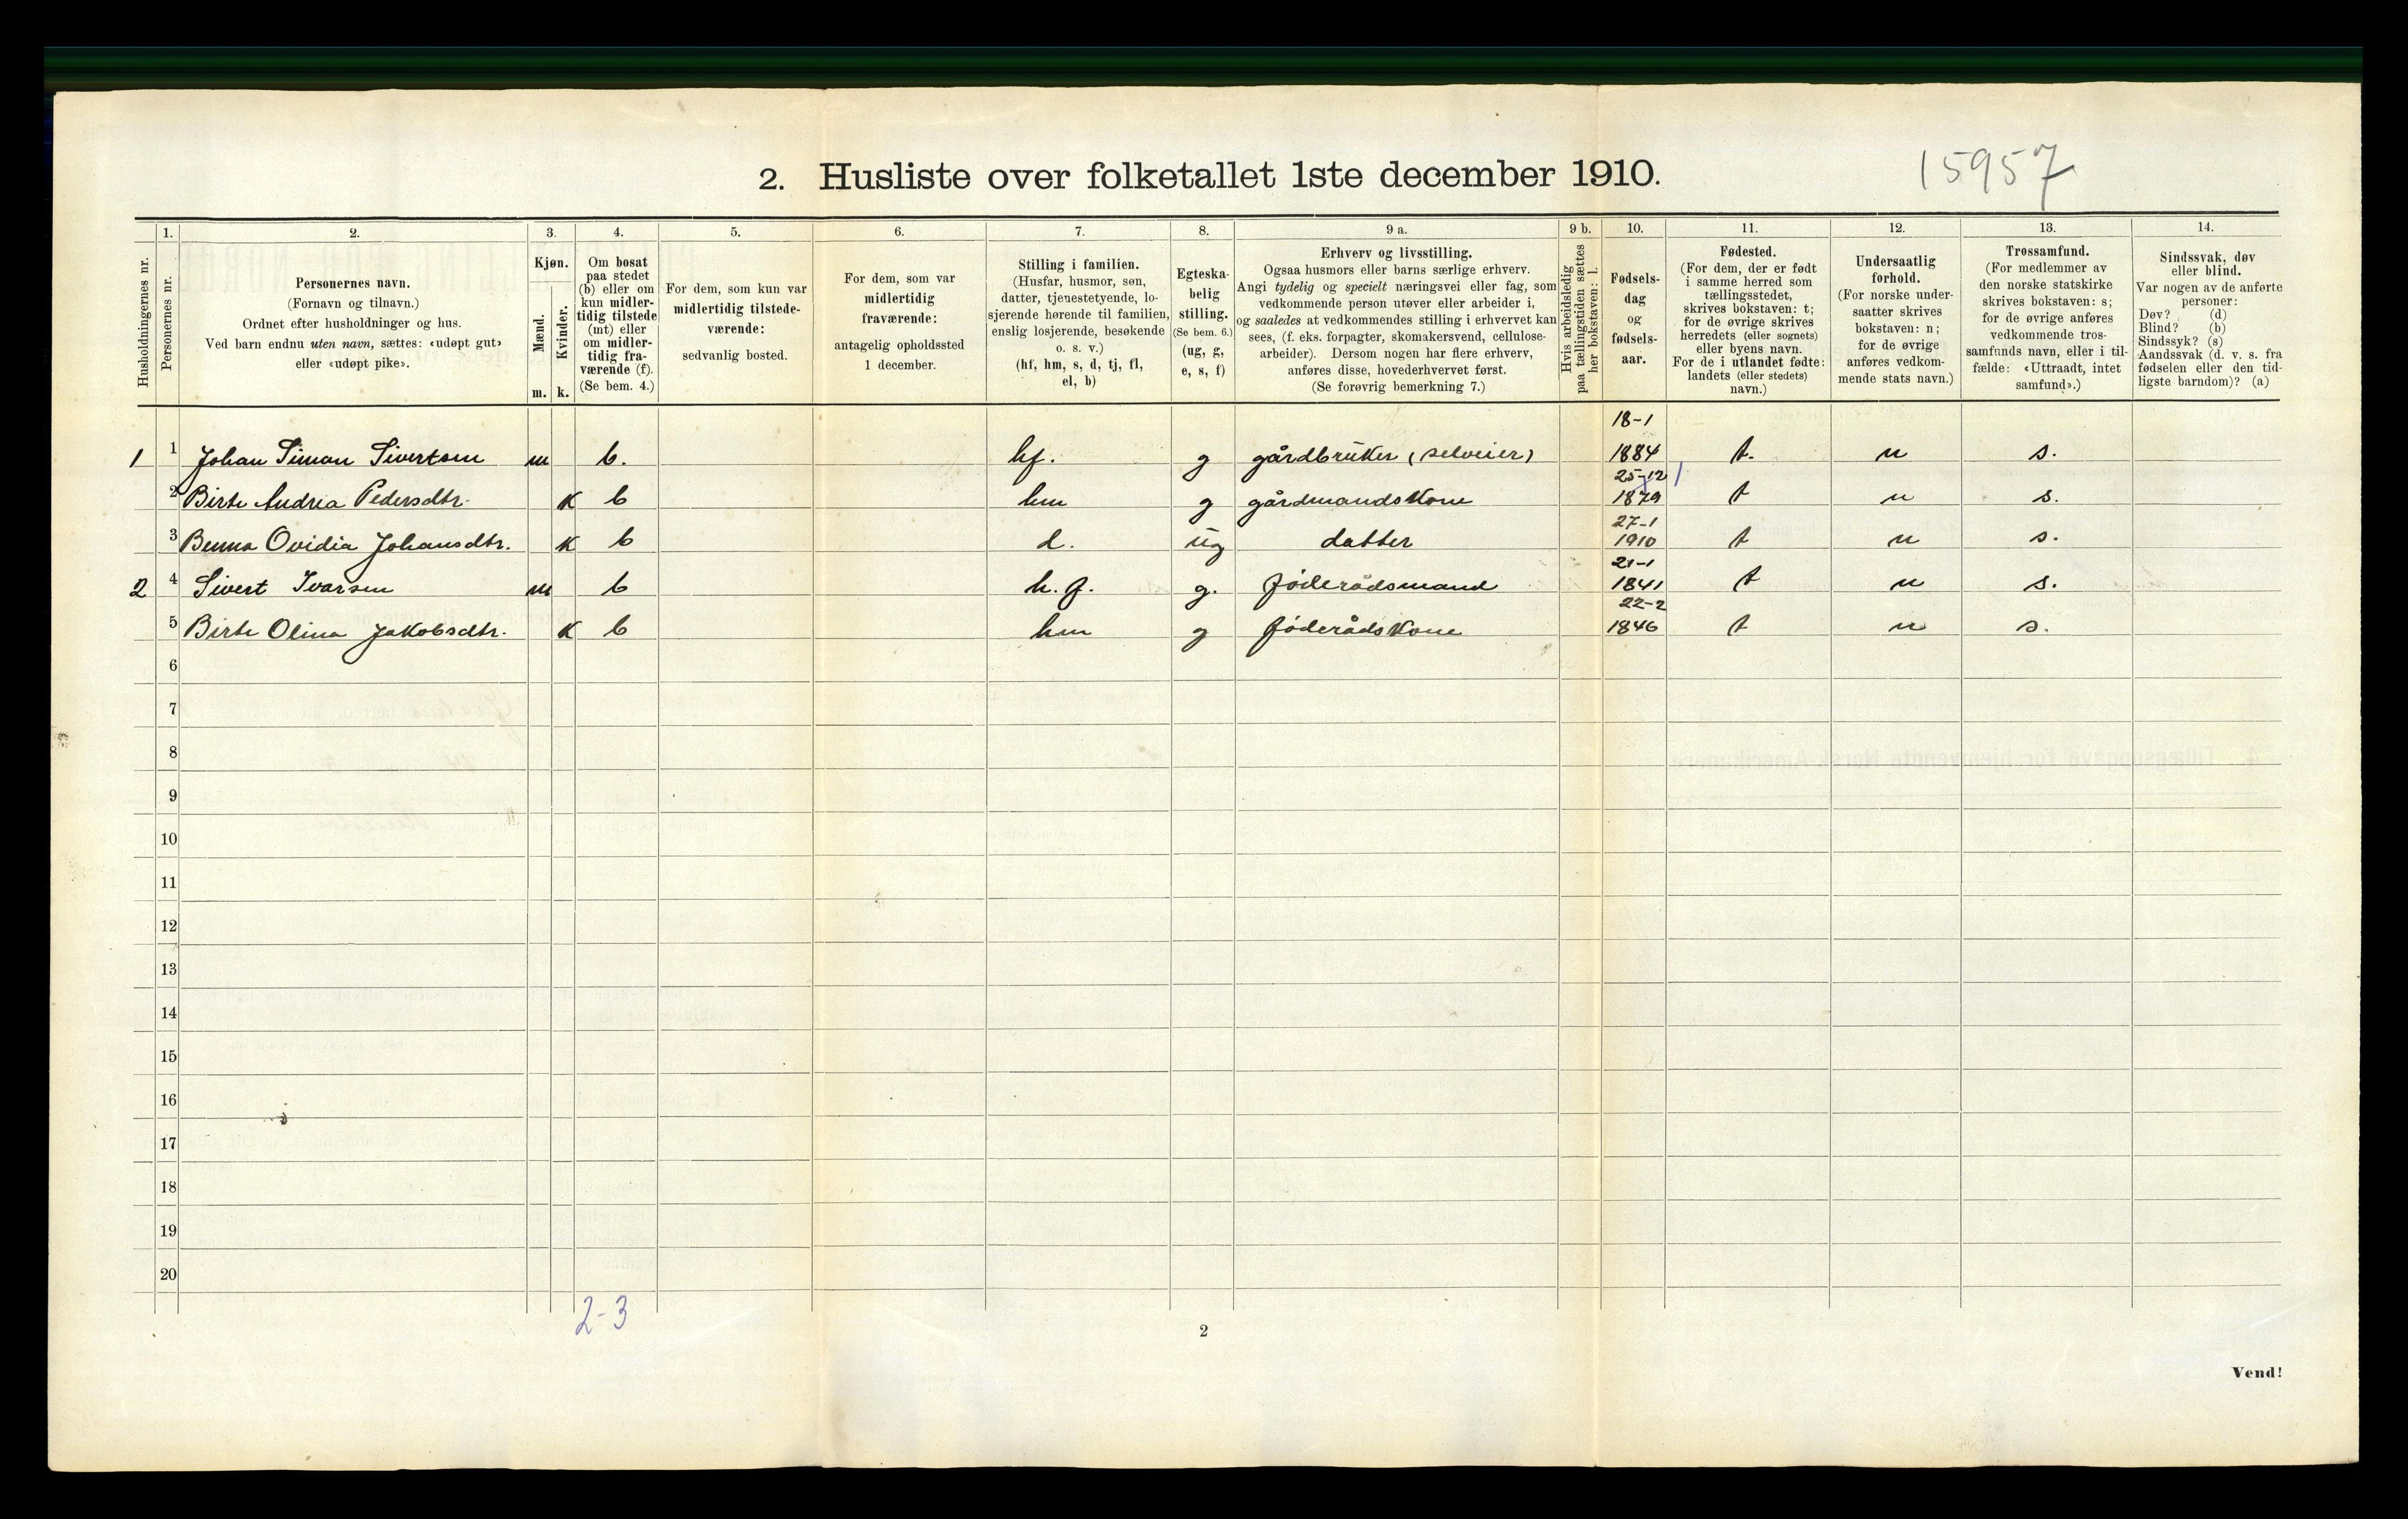 15957
2. Husliste over folketallet 1ste december 1910.
Husholdningernes nr.
1.
Personernes nr.
2.
Personernes navn.
(Fornavn og tilnavn.)
Ordnet efter husholdninger og hus.
Ved barn endnu uten navn, sættes: «udøpt gut»
eller «udøpt pike».
3.
Kjøn.
Mænd.
Kvinder.
m. k.
4.
Om bosat
paa stedet
(b) eller om
kun midler-
tidig tilstede
(mt) eller
om midler-
tidig fra-
værende (f).
(Se bem. 4.)
5.
For dem, som kun var
midlertidig tilstede-
værende:
sedvanlig bosted.
6.
For dem, som var
midlertidig
fraværende:
antagelig opholdssted
1 december.
7.
Stilling i familien.
(Husfar, husmor, søn,
datter, tjenestetyende, lo-
sjerende hørende til familien,
enslig losjerende, besøkende
o. s. v.)
(hf, hm, s, d, tj, fl,
el, b)
8.
Egteska-
belig
stilling.
(Se bem. 6.)
(ug, g,
e, s, f)
9 a.
Erhverv og livsstilling.
Ogsaa husmors eller barns særlige erhverv.
Angi tydelig og specielt næringsvei eller fag, som
vedkommende person utøver eller arbeider i,
og saaledes at vedkommendes stilling i erhvervet kan
sees, (f. eks. forpagter, skomakersvend, cellulose-
arbeider). Dersom nogen har flere erhverv,
anføres disse, hovederhvervet først.
(Se forøvrig bemerkning 7.)
9 b.
Hvis arbeidsledig
paa tællingstiden sættes
her bokstaven: l.
10.
Fødsels-
dag
og
fødsels-
aar.
11.
Fødested.
(For dem, der er født
i samme herred som
tællingsstedet,
skrives bokstaven: t;
for de øvrige skrives
herredets (eller sognets)
eller byens navn.
For de i utlandet fødte:
landets (eller stedets)
navn.)
12.
Undersaatlig
forhold.
(For norske under-
saatter skrives
bokstaven: n;
for de øvrige
anføres vedkom-
mende stats navn.)
13.
Trossamfund.
(For medlemmer av
den norske statskirke
skrives bokstaven: s;
for de øvrige anføres
vedkommende tros-
samfunds navn, eller i til-
fælde: «Uttraadt, intet
samfund».)
14.
Sindssvak, døv
eller blind.
Var nogen av de anførte
personer:
Døv? (d)
Blind? (b)
Sindssyk? (s)
Aandssvak (d. v. s. fra
fødselen eller den tid-
ligste barndom)? (a)
18-1
1 1 Johan Simon Sivertsen m b. hf. g gårdbruker (selveier) 1884 t. n s.
25-12
2 Birte Andrea Pedersdtr. k b hm g gårdmandskone 1879 t n s.
27-1
3 Benna Ovidia Johansdtr. k b d. ug datter 1910 t n s.
21-1
2 4 Sivert Ivarsen m b h.f. g. føderådsmand 1841 t n s.
22-2
5 Birte Olina Jakobsdtr. k b hm g føderådskone 1846 t n s.
6
7
8
9
10
11
12
13
14
15
16
17
18
19
20
2-3
2
Vend!